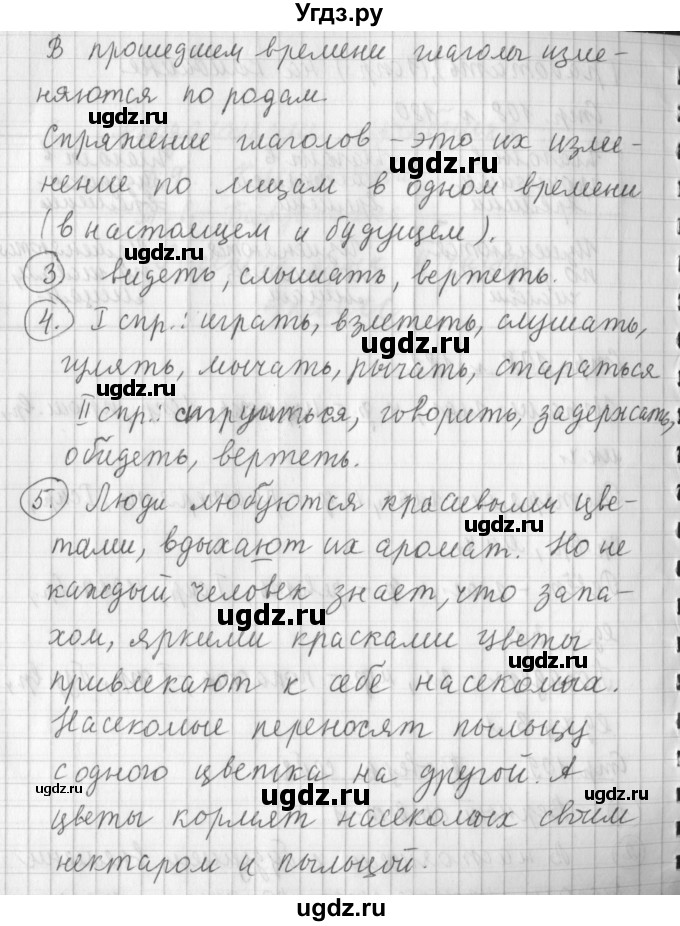 Угдз.ру
В прошедшем времени глаголы изме-
няются по родам.
Спряжение глаголов – это их изме-
нение по лицам в одном времени
(в настоящем и будущем).
3 видеть, слышать, вертеть.
4. I спр.: играть, взлететь, слушать,
гулять, мычать, рычать, стараться
II спр.: струиться, говорить, задержать,
обидеть, вертеть.
5) Люди любуются красивыми цве-
тами, вдыхают их аромат. Но не
каждый человек знает, что запа-
хом, яркими красками цветы
привлекают к себе насекомых.
Насекомые переносят пыльцу
с одного цветка на другой. А
цветы кормят насекомых своим
нектаром и пыльцой.
ugdz.ru
ugdz.ru
ugdz.ru
ugdz.ru
ugdz.ru
ugdz.ru
ugdz.ru
ugdz.ru
ugdz.ru
ugdz.ru
ugdz.ru
ugdz.ru
ugdz.ru